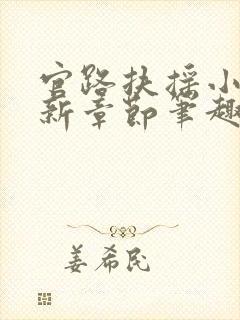 官路扶摇小
新章节笔趣
姜希民